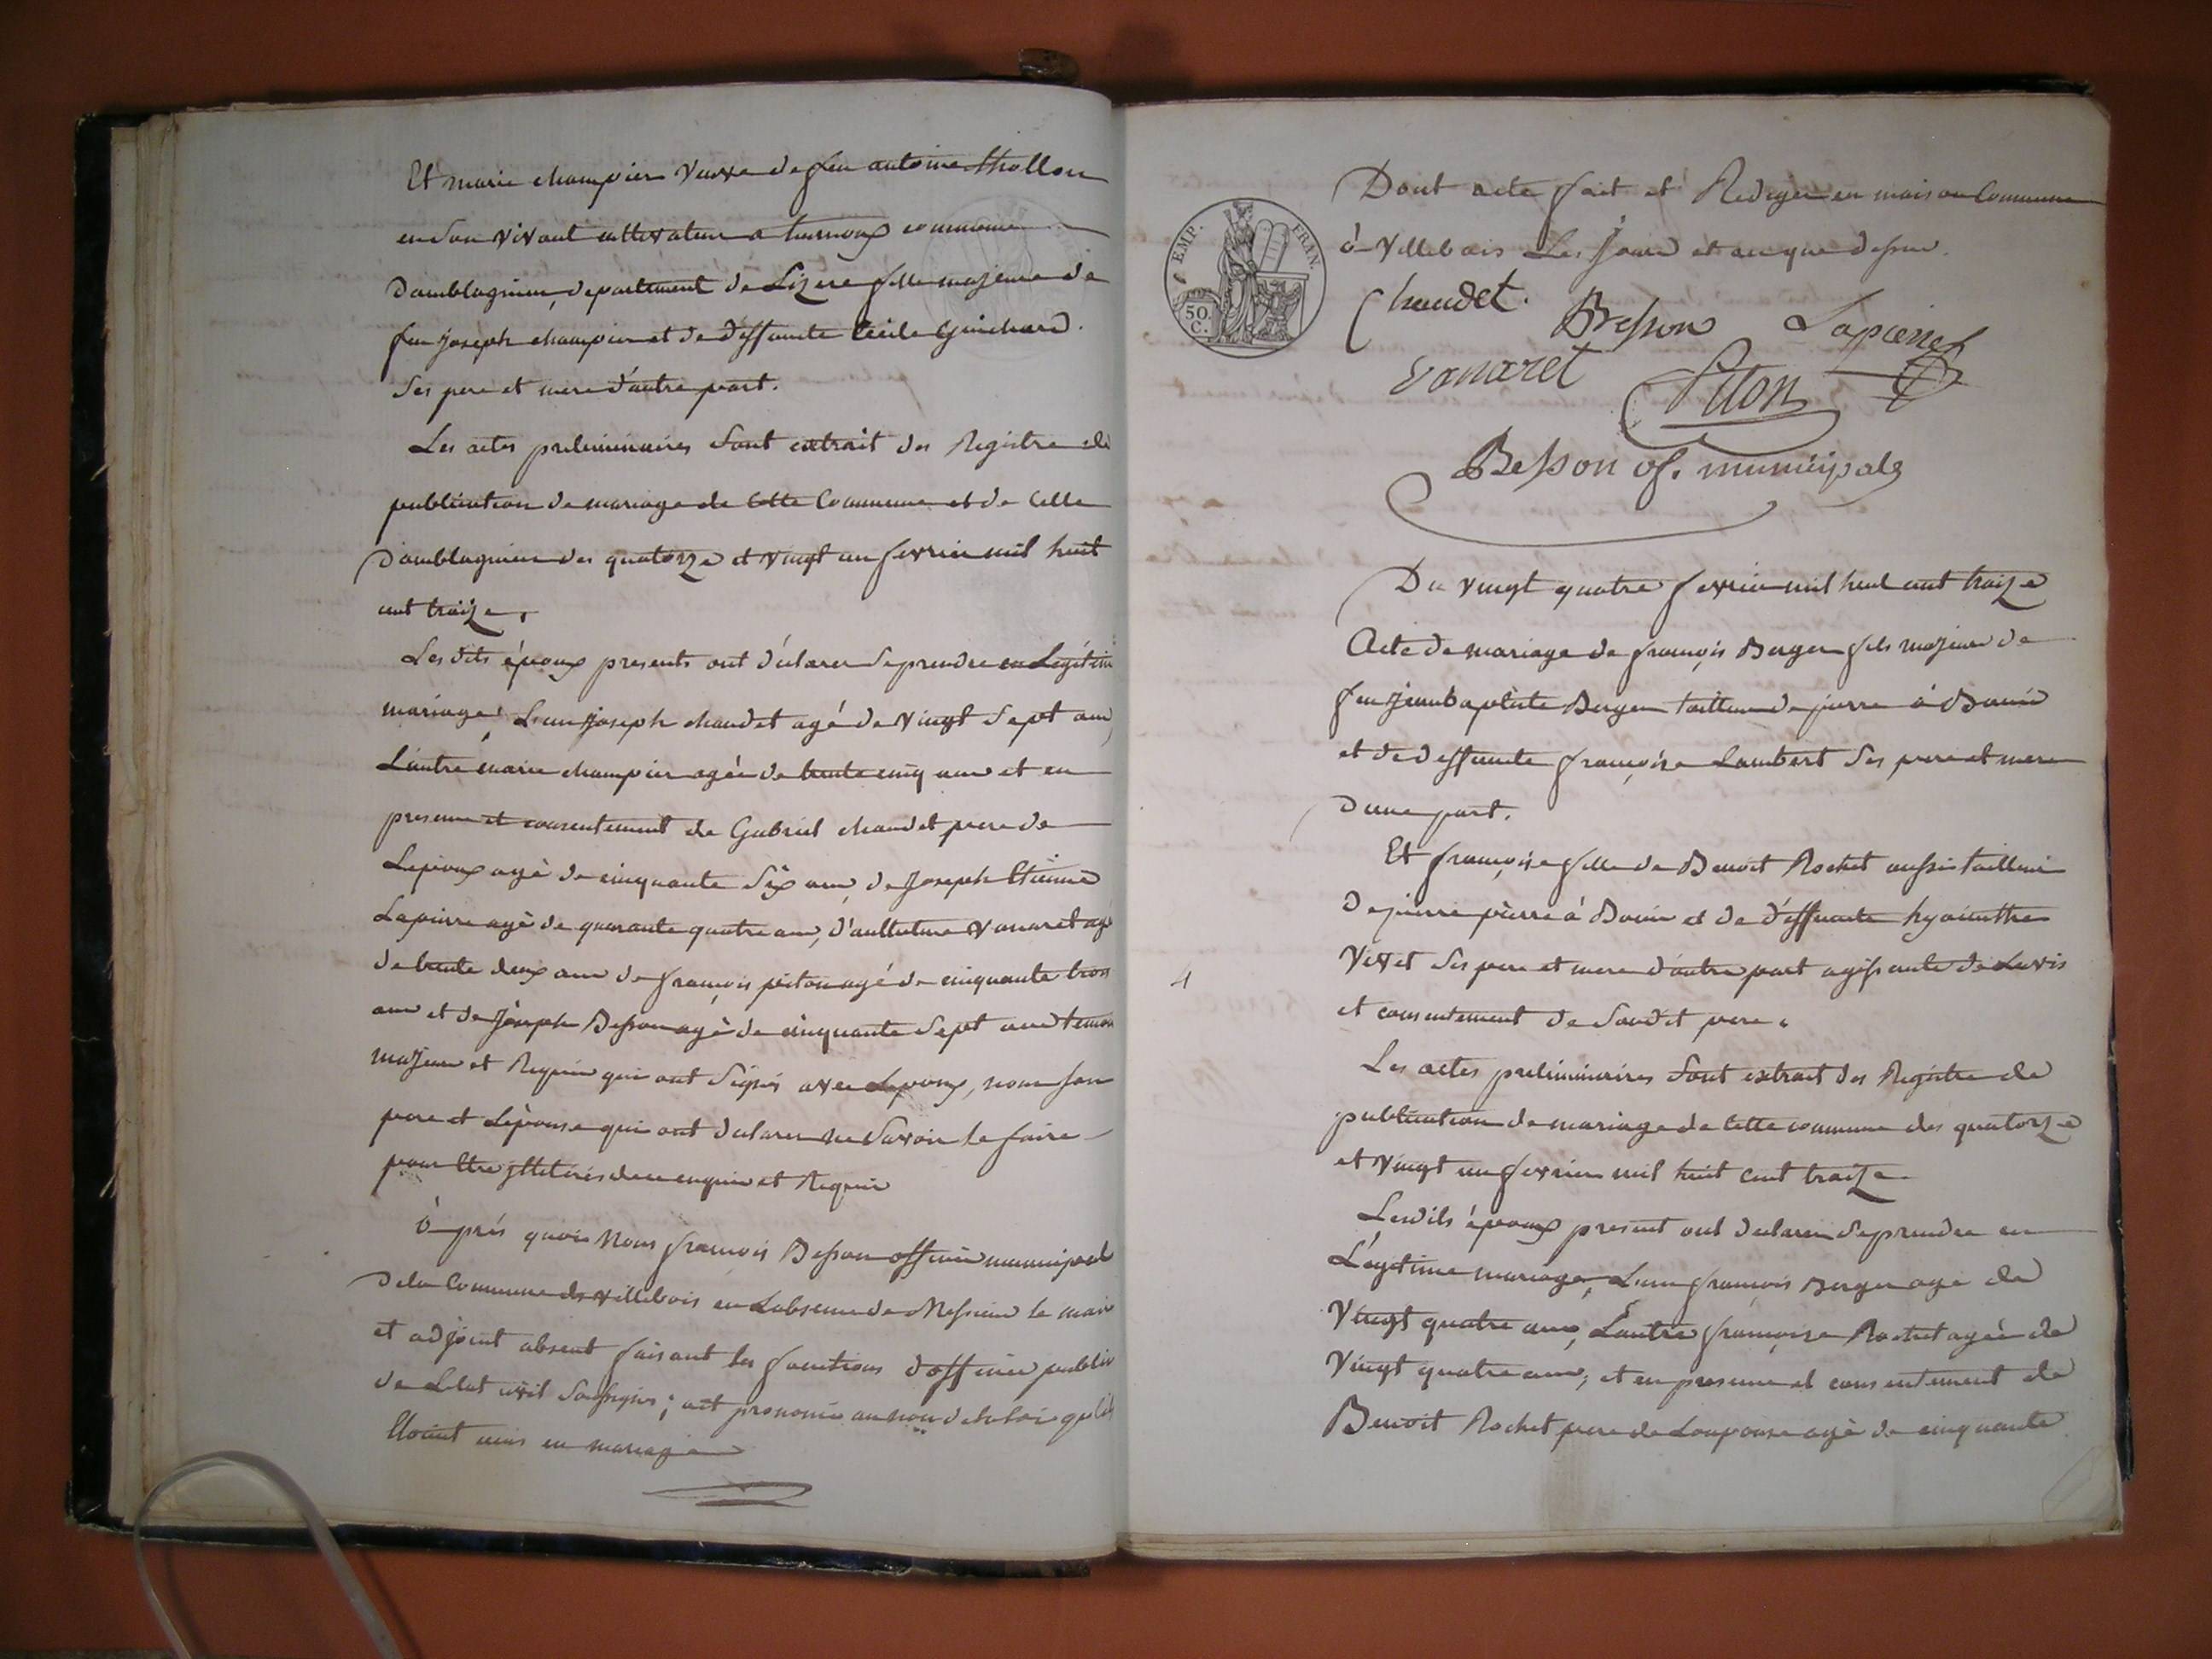 Et marie champier veuve de feu antoine thollon
en son vivant cultivateur a commune
Damblagnieu, departement de Lizere fille majeure de
feu joseph champier et de deffunte Cécile Guichard.
Ses pere et mere d'autre part.
Les actes preliminaires Sont extrait des Registre de
publication de mariage de Cette Commune et de Celle
Damblagnieu des quatorze et vingt un fevrier mil huit
cent traize.
Les dits époux presents ont déclarer Se prendre en Legitim
mariage, L'un joseph chaudet agé de vingt Sept ans
L'autre marie champier agée de trente cinq ans et en
presence et consentement de Gabriel chaudet pere de
Lepoux agé de cinquante Six ans, de Joseph Etienne
Lapierre agé de quarante quatre ans, d'anthelme vanaret agé
de trente deux ans de françois piton agé de cinquante trois
ans et de Joseph Besson agé de cinquante Sept ans temoin
majeurs et Requis qui ont Signés avec Lepoux, non son
pere et Lépouse qui ont declarer ne Savoir le faire
pour être illiterés de ce enquis et Requis
à prés quoi Nous françois Besson officier municipal
de la Commune de villebois en Labsence de Messieur le maire
et adjoint absent faisant les fonctions dofficier public
de Letat civil Soussignés; ont prononcé au nom de la loi quils
Etoient unis en mariage
EMP. FRAN.
50.
C.
Dont acte fait et Rediger en maison Commune
à Villebois Les Jours et an que dessus.
Chaudet. Besson Lapierre
vanaret Piton
Besson of. municipale
Du vingt quatre fevrier mil huit cent traize
Acte de mariage de françois Berger fils majeur de
feu jean baptiste Berger tailleur de pierre à Bouis
et de deffunte françoise Lambert Ses pere et mere
dune part.
4
Et françoise fille de Benoit Rochet aussi tailleur
de pierre pierre à Bouis et de déffunte hyacinthe
Vivet Ses pere et mere d'autre part agissante de Lavis
et consentement de Sondit pere.
Les actes preliminaires Sont extrait des Registre de
publication de mariage de Cette commune des quatorze
et vingt un fevrier mil huit Cent traize
Lesdits époux present ont declarer Se prendre en
Légitime mariage, L'un françois Berger agé de
Vingt quatre ans, L'autre françoise Rochet agée de
Vingt quatre ans, et en presence et consentement de
Benoit Rochet pere de Lonpouse agé de cinquante